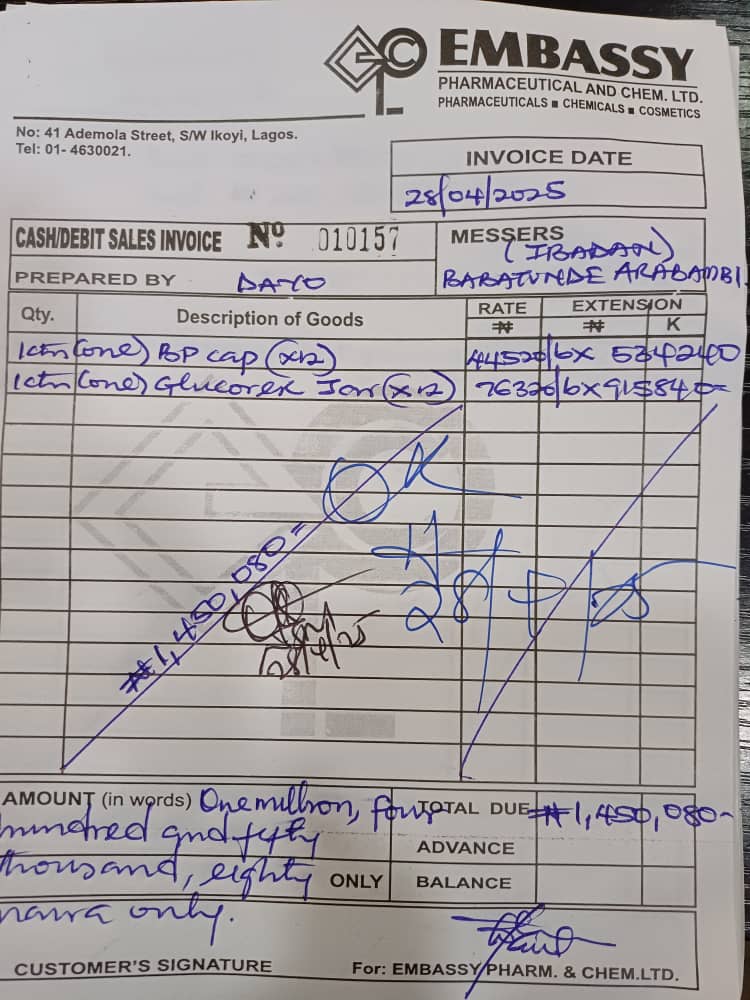 EMBASSY
PHARMACEUTICAL AND CHEM. LTD.
PHARMACEUTICALS ■ CHEMICALS ■ COSMETICS
No: 41 Ademola Street, S/W Ikoyi, Lagos.
Tel: 01- 4630021.
INVOICE DATE
28/04/2025
CASH/DEBIT SALES INVOICE Nº 010157
MESSERS (IBADAN)
PREPARED BY DAYO
BABATUNDE ARABAMBI.
Qty. Description of Goods RATE ₦ EXTENSION ₦ K
1ctn (one) BP cap (x12) 44520/bx 534240
1ctn (one) Glucorex Jar (x12) 76320/bx 915840=
OK
₦1,450,080=
28/4/25
28/4/25
AMOUNT (in words) One million, four
hundred and fifty
thousand, eighty ONLY
naira only.
TOTAL DUE ₦1,450,080-
ADVANCE
BALANCE
CUSTOMER'S SIGNATURE For: EMBASSY PHARM. & CHEM.LTD.